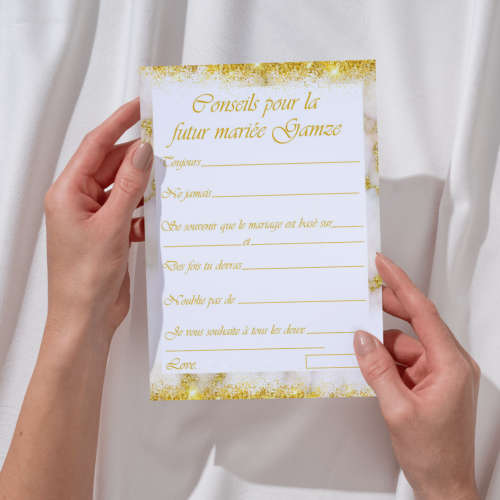 Conseils pour la
futur mariée Gamze
Toujours
Ne jamais
Se souvenir que le mariage est basé sur
et
Des fois tu devras
N'oublie pas de
Je vous souhaite à tous les deux
Love,